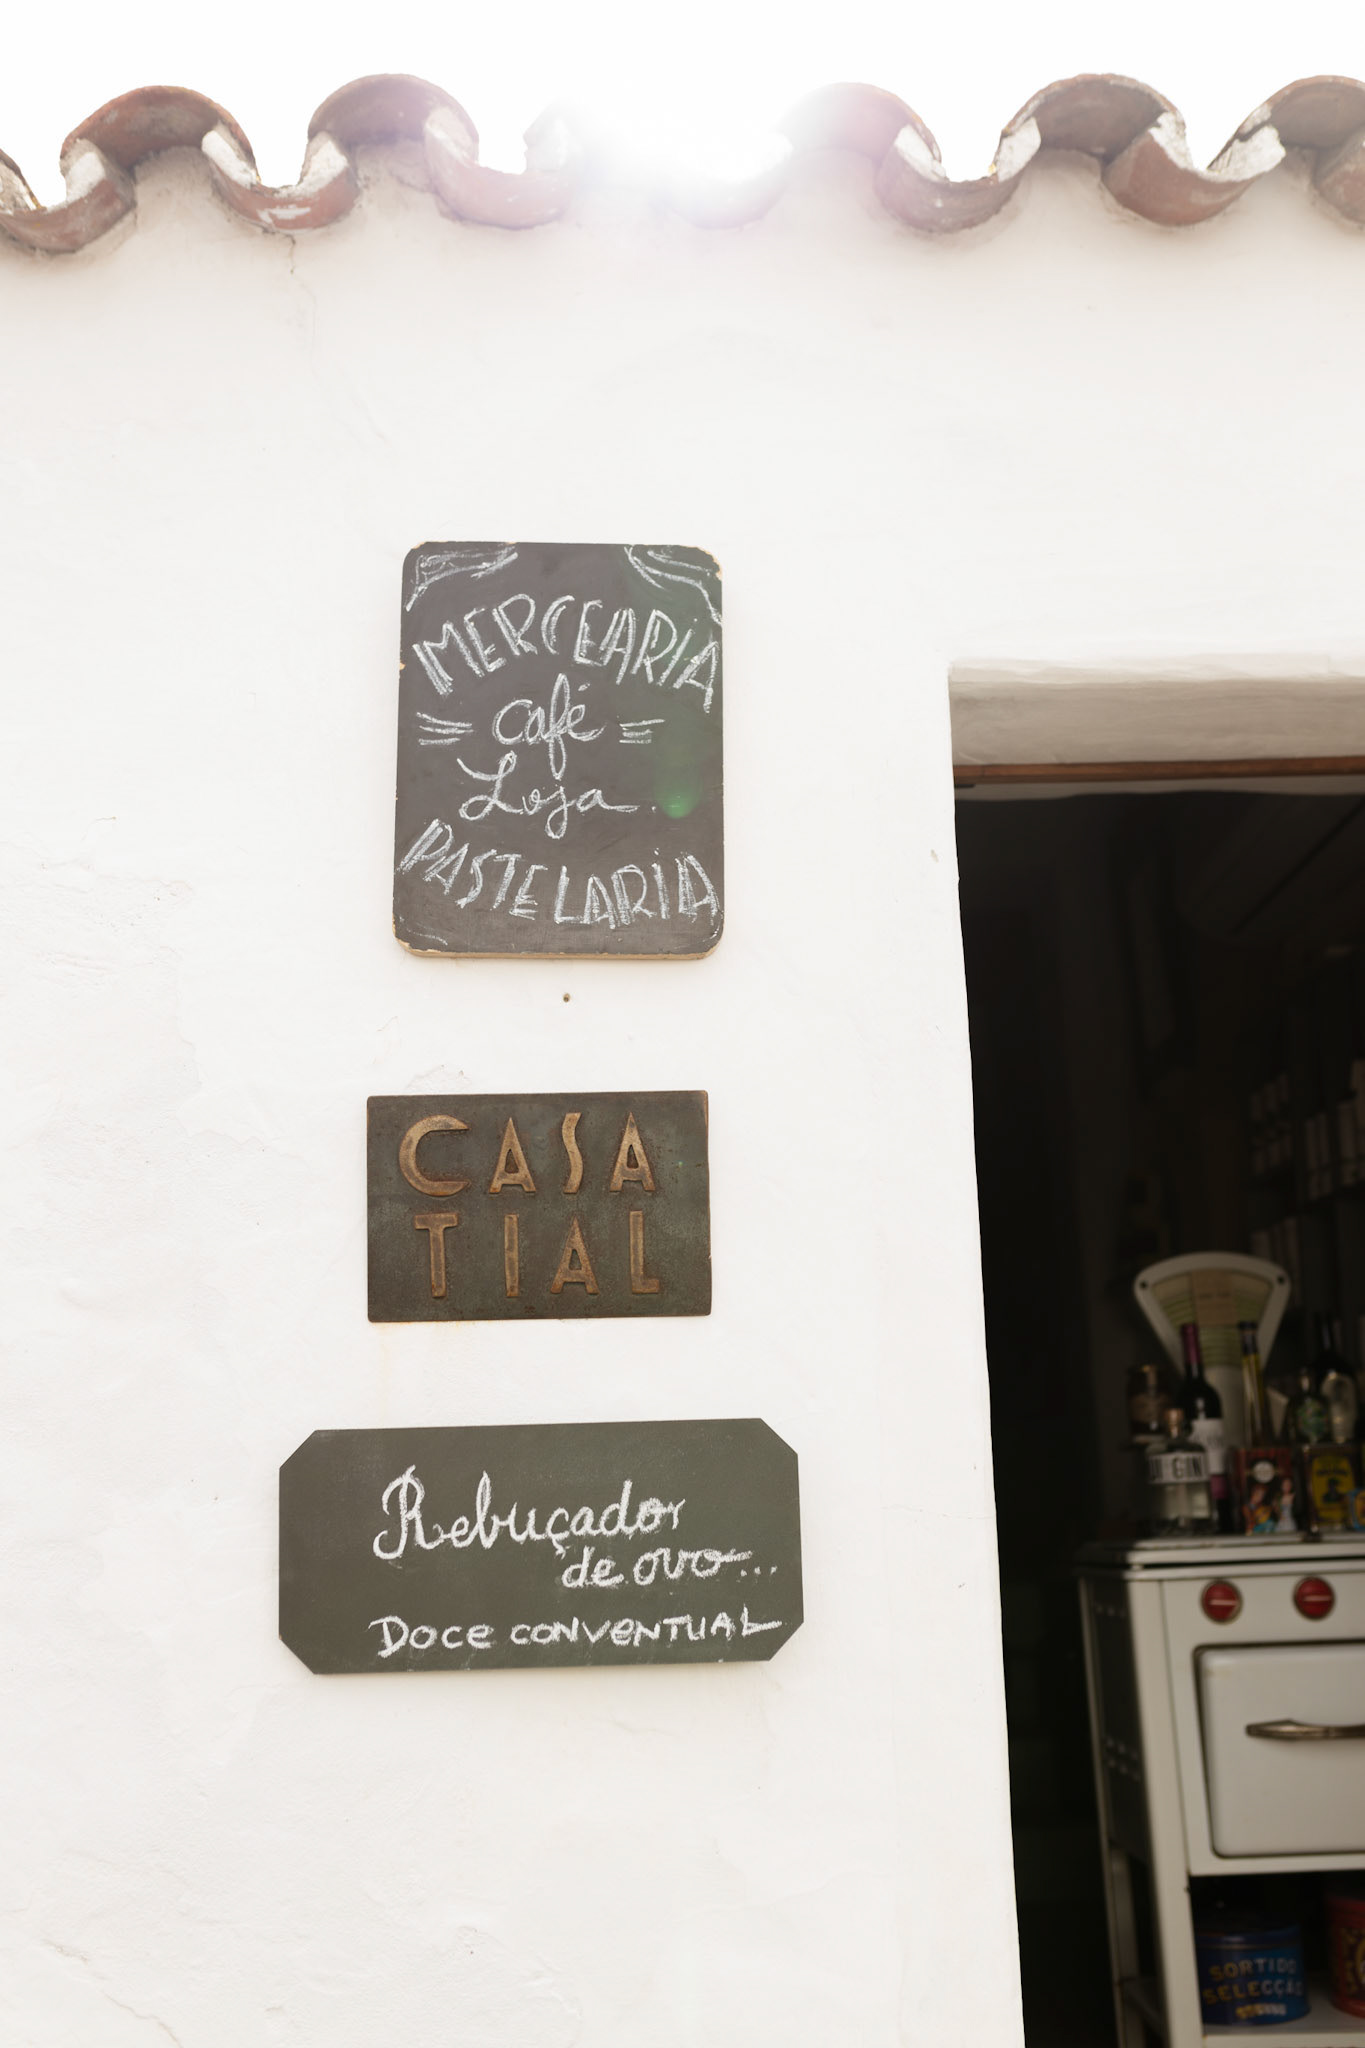 MERCEARIA
Café
Loja
PASTELARIA
CASA
TIAL
Rebuçador
de ovo...
DOCE CONVENTUAL
GIN
SORTIDO
SELECÇÃO